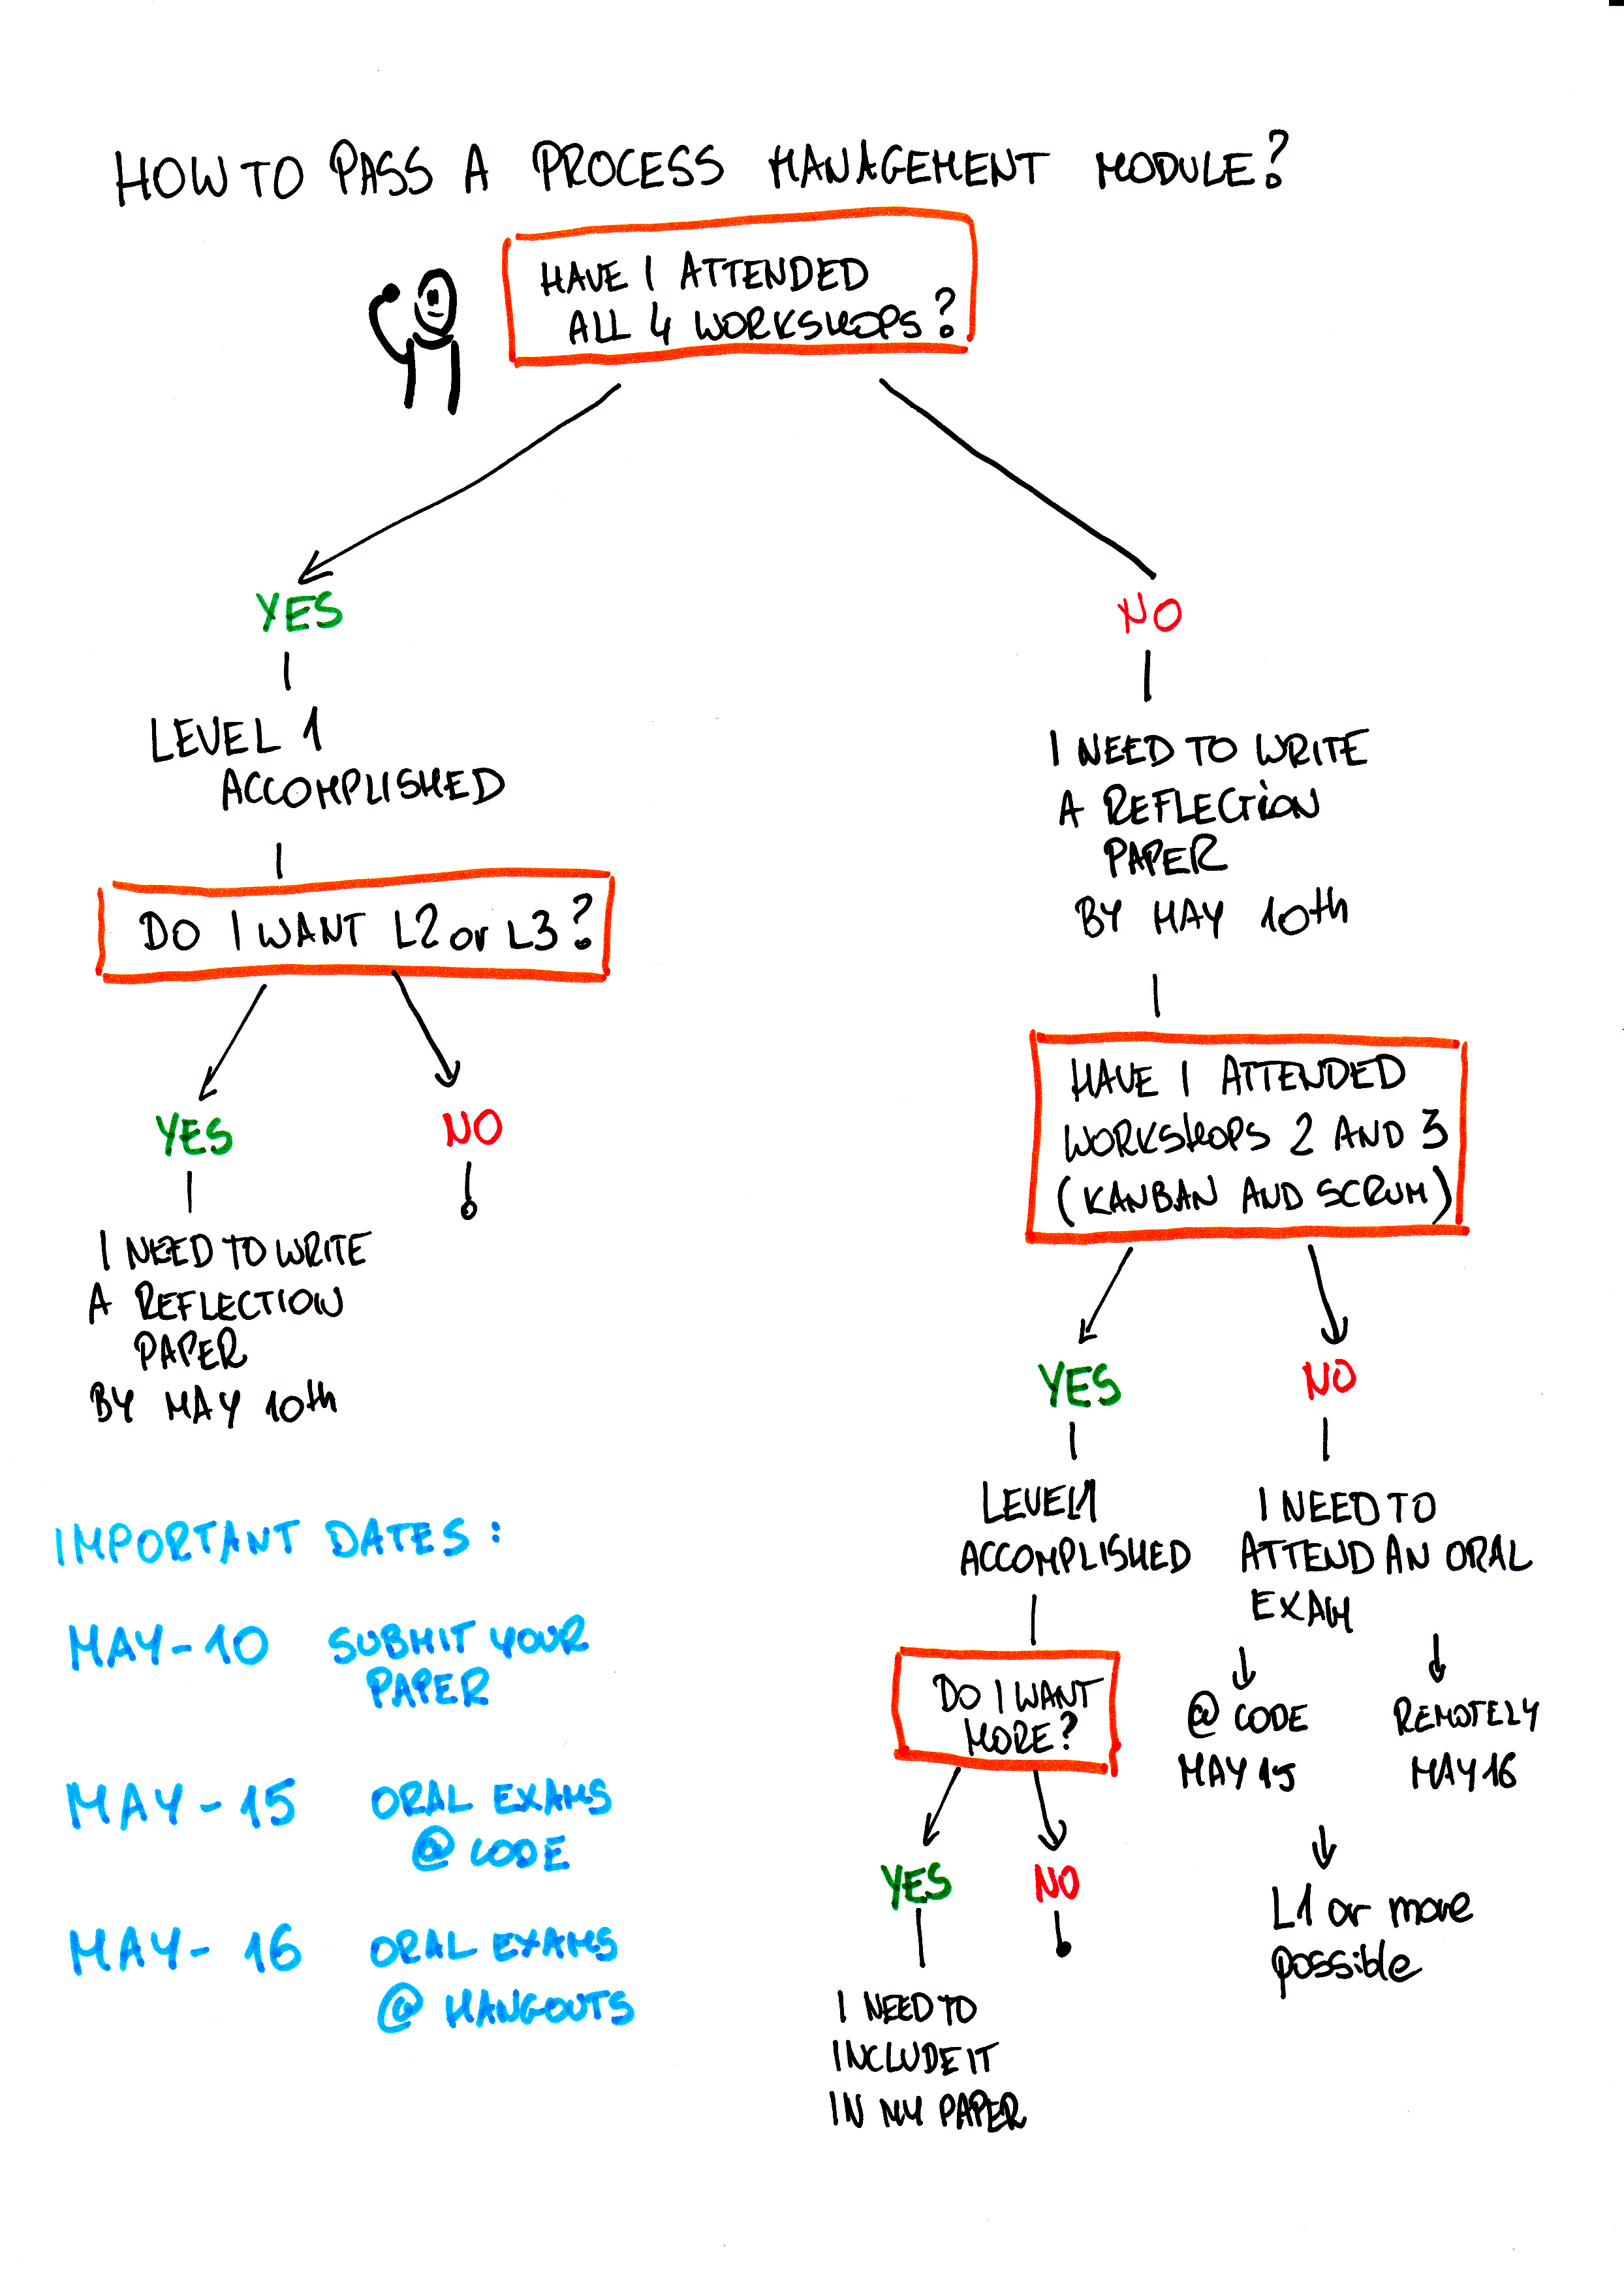 HOW TO PASS A PROCESS MANAGEMENT MODULE?
HAVE I ATTENDED
ALL 4 WORKSHOPS?
YES
LEVEL 1
ACCOMPLISHED
DO I WANT L2 or L3?
YES
I NEED TO WRITE
A REFLECTION
PAPER
BY MAY 10th
NO
NO
I NEED TO WRITE
A REFLECTION
PAPER
BY MAY 10th
HAVE I ATTENDED
WORKSHOPS 2 AND 3
(KANBAN AND SCRUM)
YES
LEVEL 1
ACCOMPLISHED
DO I WANT
MORE?
YES
I NEED TO
INCLUDE IT
IN MY PAPER
NO
NO
I NEED TO
ATTEND AN ORAL
EXAM
@ CODE
MAY 15
REMOTELY
MAY 16
L1 or more
possible
IMPORTANT DATES:
MAY-10 SUBMIT YOUR
PAPER
MAY-15 ORAL EXAMS
@ CODE
MAY-16 ORAL EXAMS
@ HANGOUTS